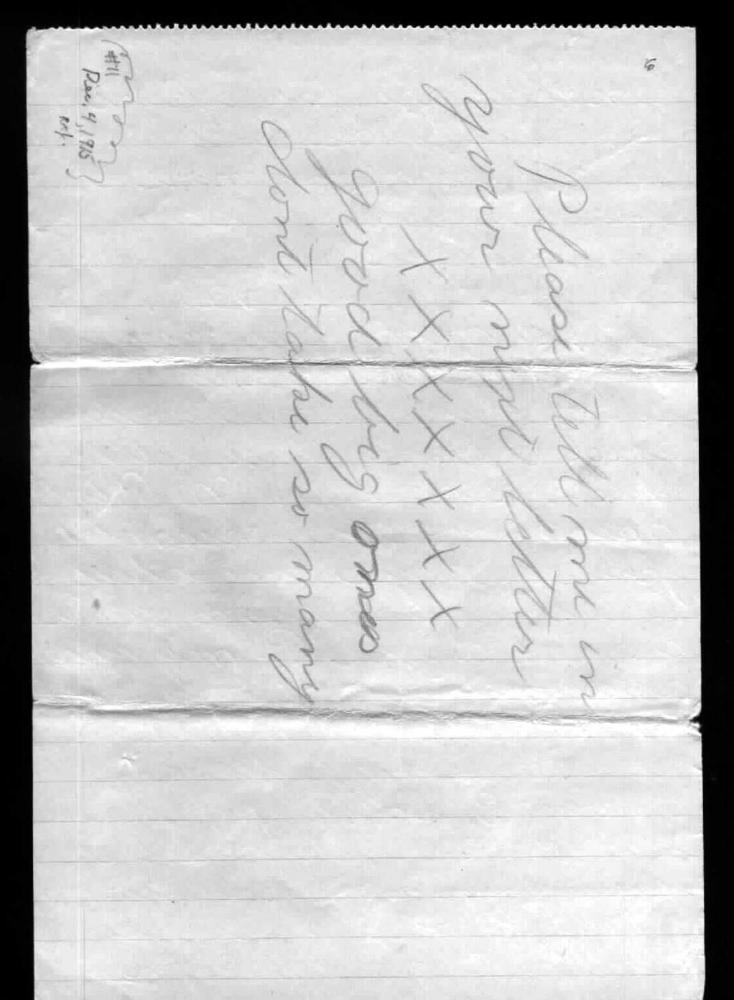 Please tell me in
your next letter
X X X X X X X
good big ones
dont take so many
#11
Dec. 4, 1915